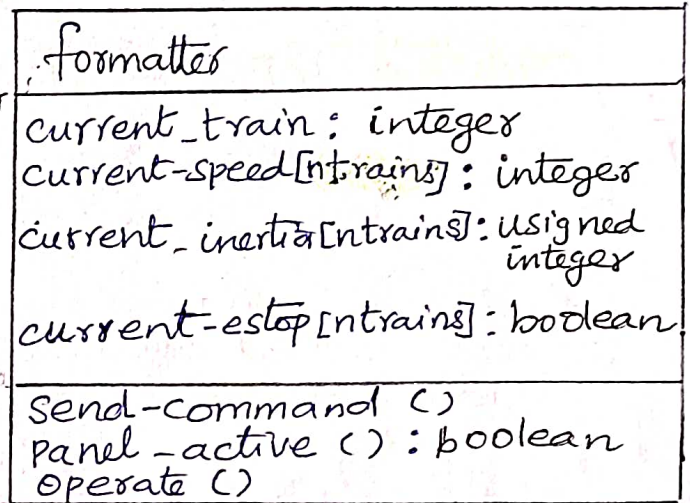 formatter
current_train: integer
current-speed[ntrains]: integer
current_inertia[ntrains]: usigned
integer
current-estop[ntrains]: boolean
send-command ()
panel_active (): boolean
operate ()